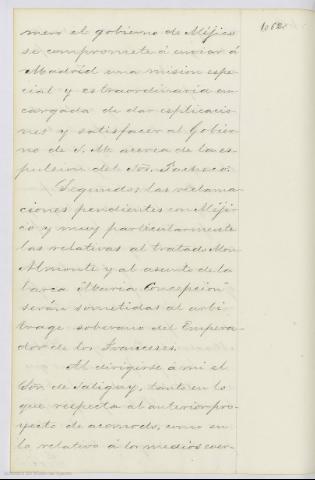 mero el gobierno de Méjico
se compromete á enviar á
Madrid una mision espe-
cial y estraordinaria en
cargada de dar esplicacio
nes y satisfacer al Gobier
no de S. M. acerca de la es
pulsion del Sor. Pacheco.
Segundo: las reclama
ciones pendientes con Méji
co y muy particularmente
las relativas al tratado Mon
Almonte y al asunto de la
barca "Maria Concepcion"
serán sometidas al arbi
trage soberano del Empera
dor de los Franceses.
Al dirigirse á mi el
Sor. de Saligny, tanto en lo
que respecta al anterior pro
yecto de acomodo, como en
lo relativo á los medios coer-